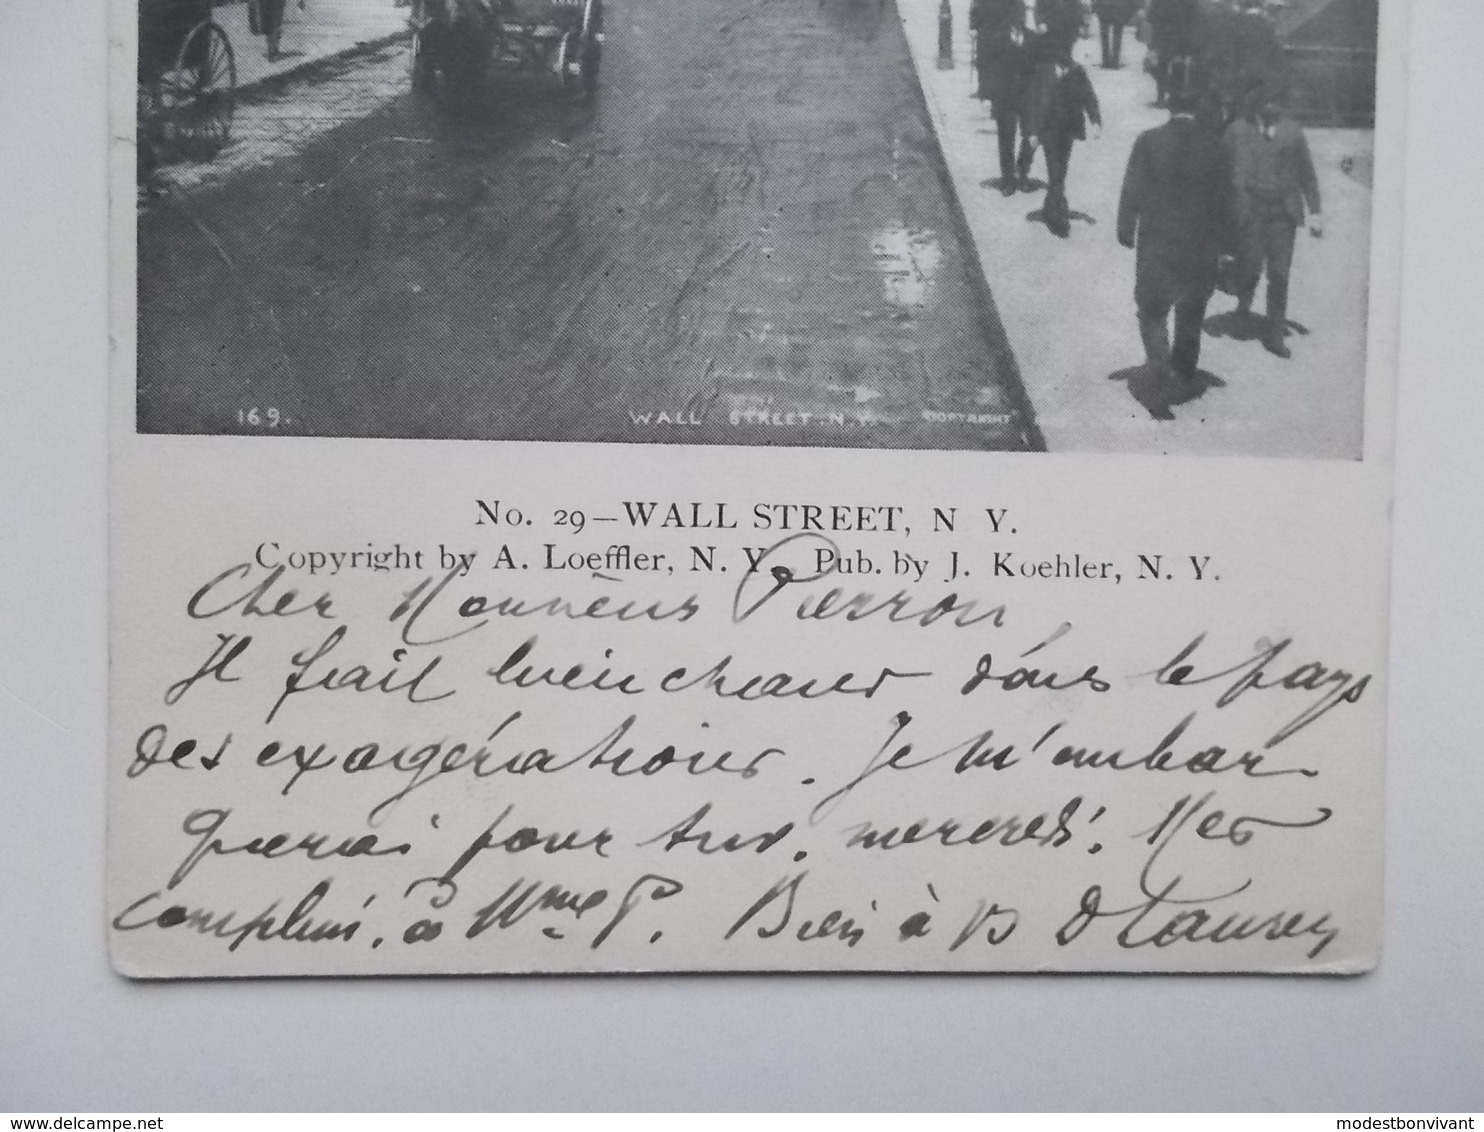 169.
WALL STREET. N. Y. COPYRIGHT
No. 29—WALL STREET, N Y.
Copyright by A. Loeffler, N. Y. Pub. by J. Koehler, N. Y.
Cher Monsieur Pierron,
Il fait bien chaud dans le pays
des exagérations. Je m'embar
querai pour sur, mercredi. Mes
complim. à Mme P. Bien à V
delcampe.net
modestbonvivant